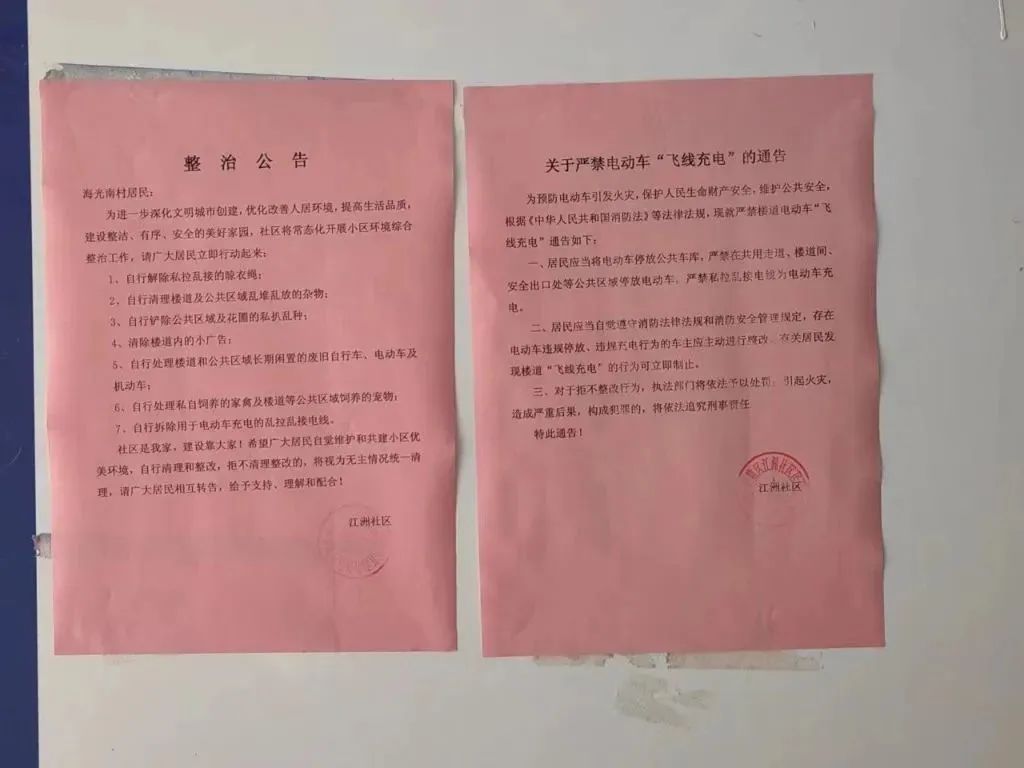 整治公告
海光南村居民：
为进一步深化文明城市创建，优化改善人居环境，提高生活品质，
建设整洁、有序、安全的美好家园，社区将常态化开展小区环境综合
整治工作，请广大居民立即行动起来：
1、自行解除私拉乱接的晾衣绳；
2、自行清理楼道及公共区域乱堆乱放的杂物；
3、自行铲除公共区域及花圃的私扒乱种；
4、清除楼道内的小广告；
5、自行处理楼道和公共区域长期闲置的废旧自行车、电动车及
机动车；
6、自行处理私自饲养的家禽及楼道等公共区域饲养的宠物；
7、自行拆除用于电动车充电的乱拉乱接电线。
社区是我家，建设靠大家！希望广大居民自觉维护和共建小区优
美环境，自行清理和整改，拒不清理整改的，将视为无主情况统一清
理，请广大居民相互转告，给予支持、理解和配合！
江洲社区
关于严禁电动车“飞线充电”的通告
为预防电动车引发火灾，保护人民生命财产安全，维护公共安全，
根据《中华人民共和国消防法》等法律法规，现就严禁楼道电动车“飞
线充电”通告如下：
一、居民应当将电动车停放公共车库，严禁在共用走道、楼道间、
安全出口处等公共区域停放电动车，严禁私拉乱接电线为电动车充
电。
二、居民应当自觉遵守消防法律法规和消防安全管理规定，存在
电动车违规停放、违规充电行为的车主应主动进行整改，有关居民发
现楼道“飞线充电”的行为可立即制止。
三、对于拒不整改行为，执法部门将依法予以处罚；引起火灾，
造成严重后果，构成犯罪的，将依法追究刑事责任
特此通告！
江洲社区